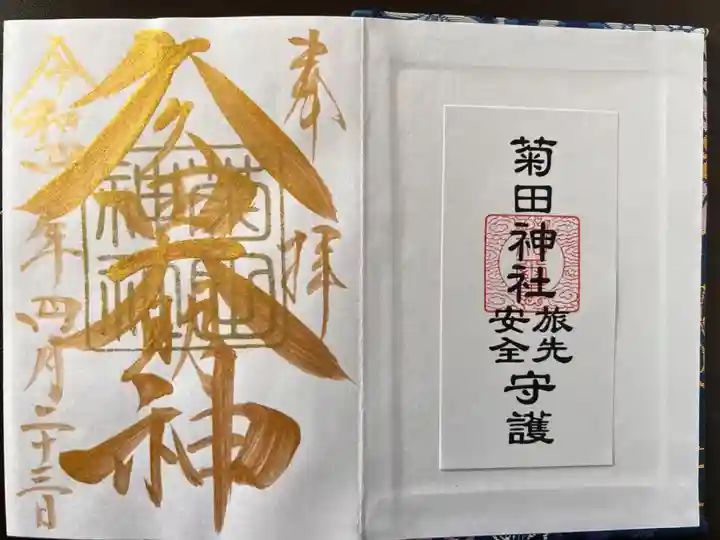 菊田神社
旅先
安全
守護
奉拝
久々田大明神
菊田
神社
令和 年四月二十三日